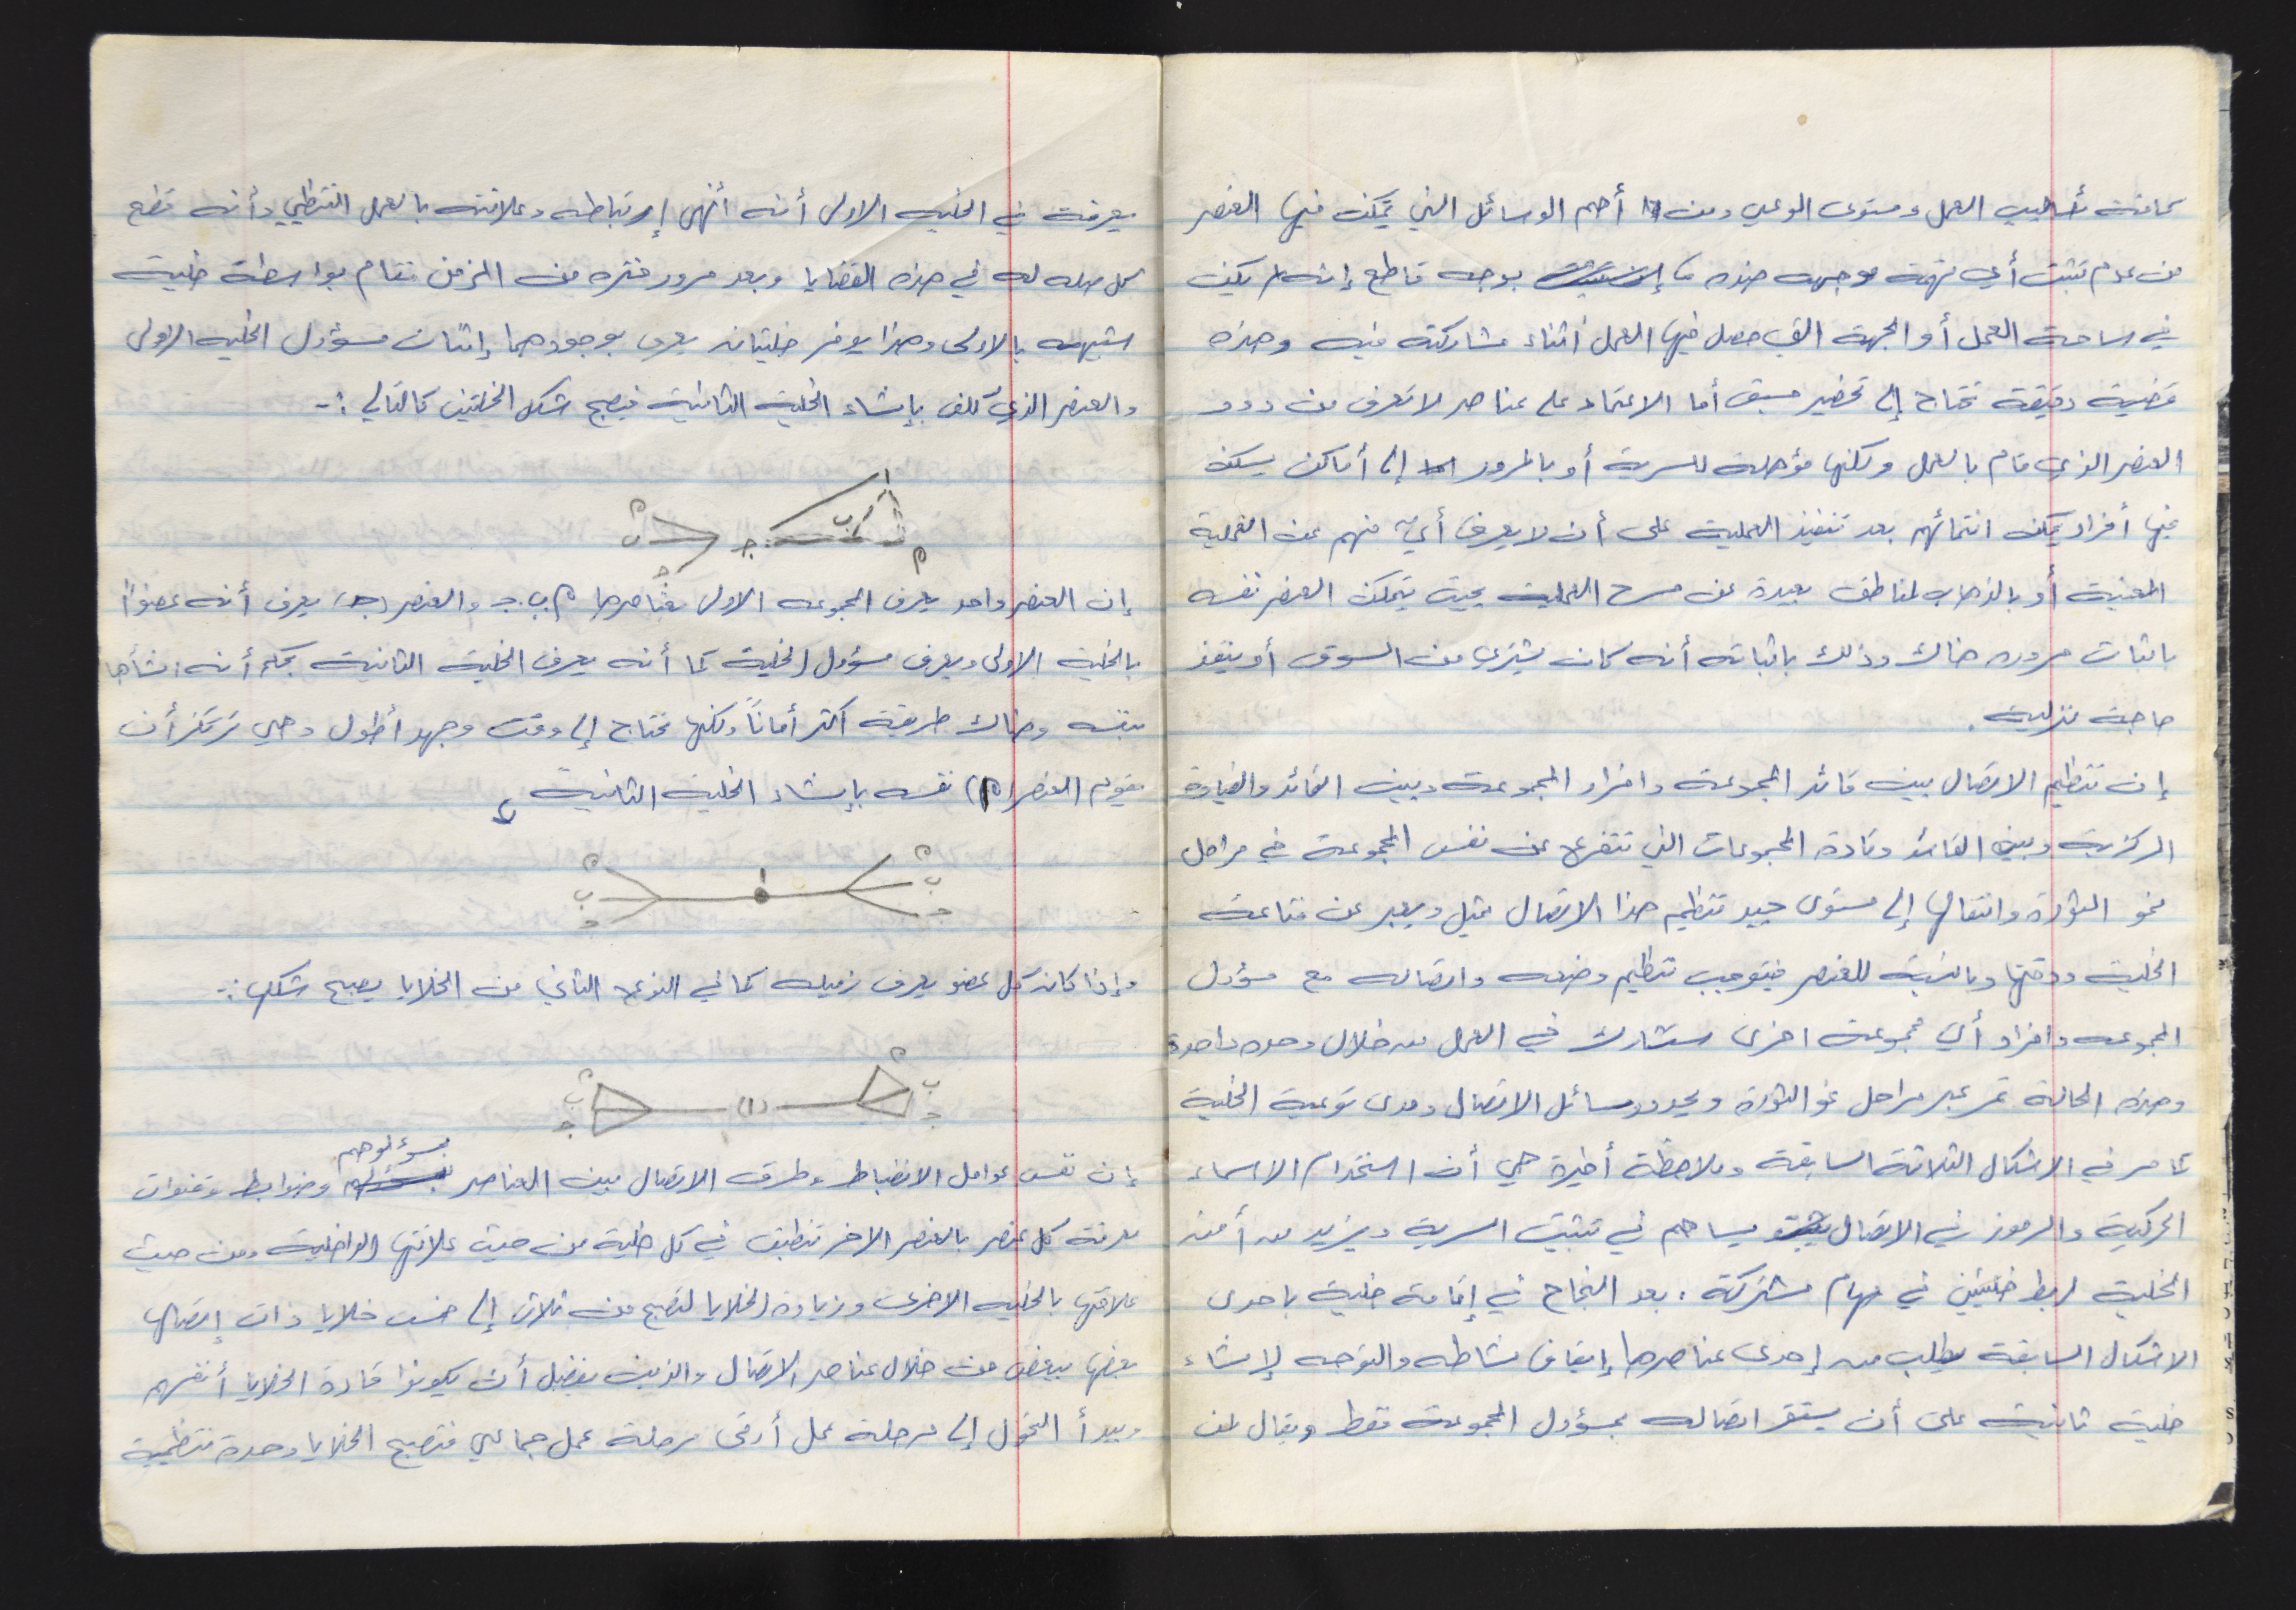 كافة أساليب العمل ومستوى الوعي ومن أهم الوسائل التي يتمكن فيها العنصر
من عدم تثبت أي تهمة موجهه ضده بوجه قاطع إنه لم يكن
في ساحة العمل أو الجهة التي حصل فيها العمل أثناء مشاركته فيه وهذه
قضية دقيقة تحتاج إلى تحضير مسبق أما الاعتماد على عناصر لا تعرف من دور
العنصر الذي قام بالعمل ولكنها مؤهلة للسرية أو بالمرور إلى أماكن يسكن
فيها أفراد يمكن ائتمانهم بعد تنفيذ العملية على أن لا يعرف أيٌ منهم عن العملية
المعنية أو بالذهاب لمناطق بعيدة عن مسرح العملية بحيث يتمكن العنصر نفسه
باثبات مروره هناك وذلك باثباته أنه كان يشتري من السوق أو ينفذ
حاجة منزلية.
إن تنظيم الاتصال بين قائد المجموعة وافراد المجموعة وبين القائد والقيادة
المركزية وبين القائد وقادة المجموعات التي تتفرع عن نفس المجموعة في مراحل
نمو الثورة وانتقالها إلى مستوى جيد تنظيم هذا الاتصال يمثل ويعبر عن مناعة
الخلية ودقتها وبالنسبة للعنصر فيتوجب تنظيم وضعه واتصاله مع مسؤول
المجموعه وافراد أي مجموعة اخرى ستشارك في العمل من خلال وحده واحدة
وهذه الحالة تمر عبر مراحل نمو الثورة ويحدد وسائل الاتصال ومدى نوعية الخلية
كما مر في الاشكال الثلاثة السابقة وملاحظة أخيرة هي أن استخدام الاسماء
الحركية والرموز في الاتصال يساهم في تثبيت السرية ويزيد من أمن
الخلية لربط خليتين في مهام مشتركة. بعد النجاح في إقامة خلية باحدى
الاشكال السابقة يطلب من إحدى عناصرها إيقاف نشاطه والتوجه لإنشاء
خلية ثانية على أن يستقر اتصاله بمسؤول المجموعة فقط ويقال لمن
يعرفه في الخليه الاولى أنه أنهى إرتباطه وعلاقته بالعمل التنظيمي وأنه قطع
كل صله له في هذه القضايا وبعد مرور فتره من الزمن تقام بواسطة خلية
شبيهه بالاولى وهذا يوفر خليتان يعرف بوجودهما إثنان مسؤول الخليه الاولى
والعنصر الذي كلف بإنشاء الخلية الثانية فيصبح شكل الخليتين كالتالي :-
١
ب
م
ج
م
ب
ج
إن العنصر واحد يعرف المجموعه الاولى بعناصرها م.ب.ج والعنصر (ج) يعرف أنه عضواً
بالخلية الاولى ويعرف مسؤول الخلية كما أنه يعرف الخلية الثانية بحكم أنه انشأها
بنفسه وهناك طريقة أكثر أماناً ولكنها تحتاج إلى وقت وجهد أطول وهي ترتكز أن
يقوم العنصر (١) نفسه بإنشاء الخلية الثانية
م
ب
ج
١
م
ب
ج
وإذا كان كل عضو يعرف زميله كما في النوع الثاني من الخلايا يصبح شكلها :-
م
ب
ج
(١)
م
ب
ج
إن نفس عوامل الانضباط وطرق الاتصال بين العناصر بمسؤلوهم وضوابط وقنوات
معرفة كل عنصر بالعنصر الاخر تنطبق في كل خلية من حيث علاقتها الداخلية ومن حيث
علاقتها بالخليه الاخرى وزيادة الخلايا لتصبح من ثلاث إلى خمس خلايا ذات إتصال
بعضها ببعض من خلال عناصر الاتصال والذين يفضل أن يكونوا قادة الخلايا أنفسهم
ويبدأ التحول إلى مرحلة عمل أرقى مرحلة عمل جماعي فتصبح الخلايا وحدة تنظيمية